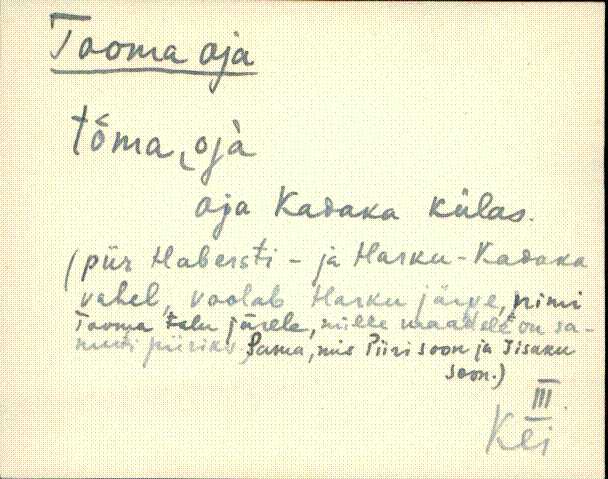 Tooma oja
tôma‿ojà
oja Kadaka külas.
(piir Habersti- ja Harku-Kadaka
vahel, voolab Harku järve, nimi
Tooma talu järele, mille maadele on sa-
muti piiriks. Sama, mis Piiri soon ja Iisaku
soon.)
III.
Kei